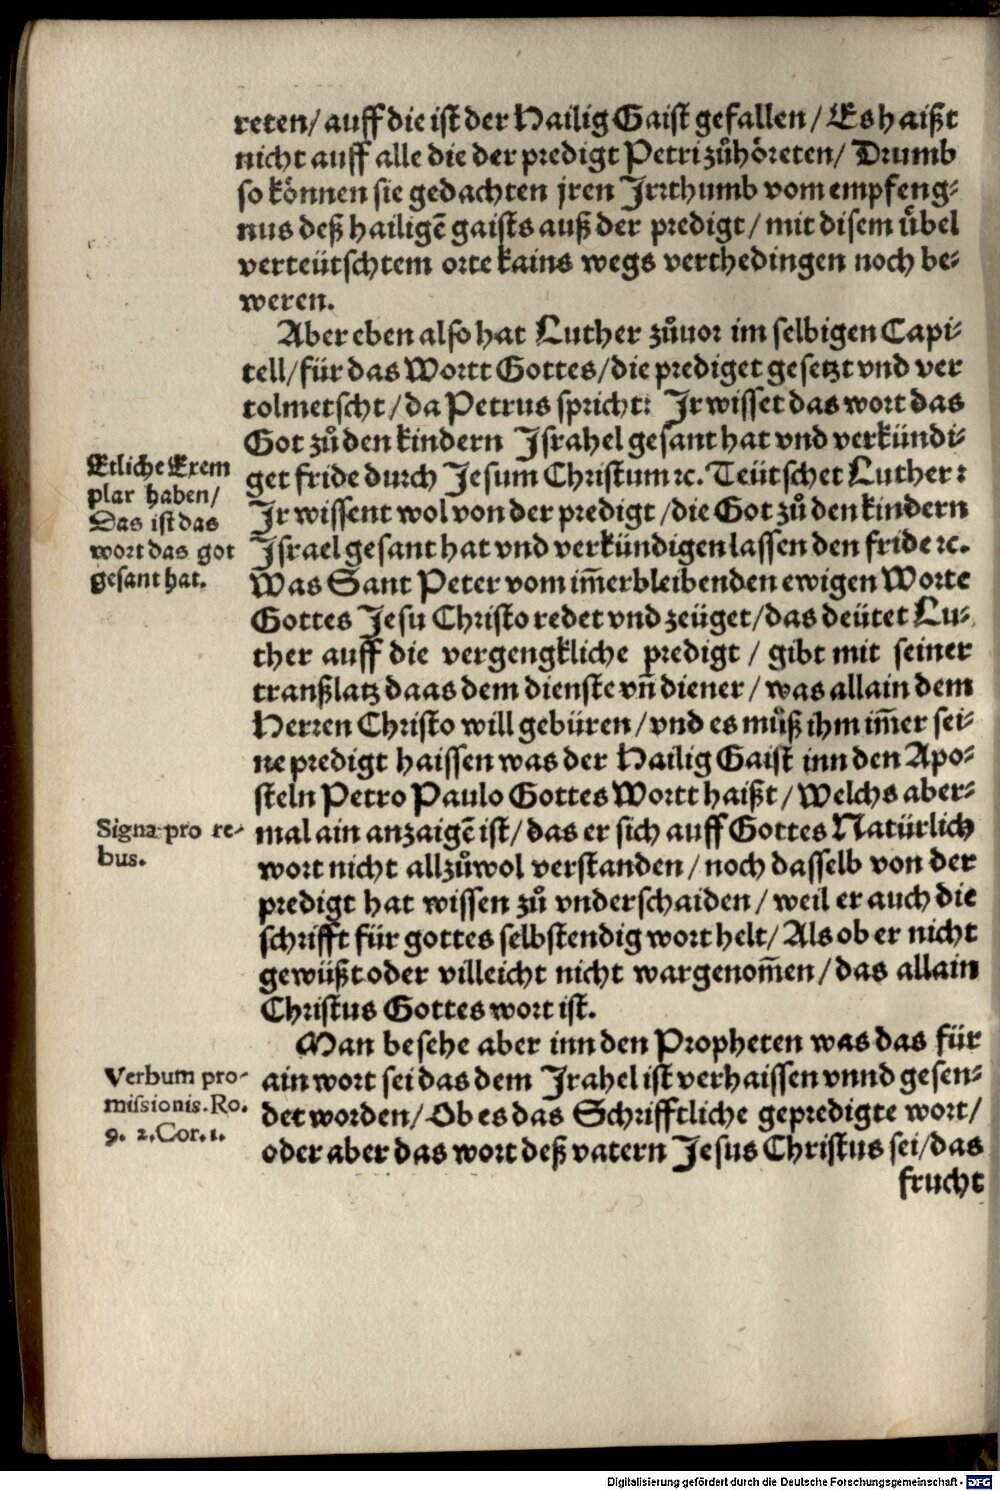 reten/ auff die ist der Hailig Gaist gefallen / Es haißt
nicht auff alle die der predigt Petri zůhöreten/ Drumb
so können sie gedachten jren Jrrthumb vom empfeng-
nus deß hailigē gaists auß der predigt / mit disem übel
verteütschtem orte kains wegs verthedingen noch be-
weren.
Aber eben also hat Luther zůuor im selbigen Capi-
tell/für das Wortt Gottes/die prediget gesetzt vnd ver
tolmetscht/da Petrus spricht: Jr wisset das wort das
Got zů den kindern Jsrahel gesant hat vnd verkündi-
get fride durch Jesum Christum ꝛc. Teütschet Luther:
Jr wissent wol von der predigt/die Got zů den kindern
Jsrael gesant hat vnd verkündigen lassen den fride ꝛc.
Was Sant Peter vom im̄erbleibenden ewigen Worte
Gottes Jesu Christo redet vnd zeüget/das deütet Lu-
ther auff die vergengkliche predigt / gibt mit seiner
tranßlatz daas dem dienste vn̄ diener/ was allain dem
Herren Christo will gebüren/vnd es můß ihm im̄er sei-
ne predigt haissen was der Hailig Gaist inn den Apo-
steln Petro Paulo Gottes Wortt haißt/ Welchs aber-
mal ain anzaigē ist/ das er sich auff Gottes Natürlich
wort nicht allzůwol verstanden/ noch dasselb von der
predigt hat wissen zů vnderschaiden/ weil er auch die
schrifft für gottes selbstendig wort helt/ Als ob er nicht
gewüßt oder villeicht nicht wargenom̄en/das allain
Christus Gottes wort ist.
Man besehe aber inn den Propheten was das für
ain wort sei das dem Jrahel ist verhaissen vnnd gesen-
det worden/ Ob es das Schrifftliche gepredigte wort/
oder aber das wort deß vatern Jesus Christus sei/das
frucht
Etliche Exem
plar haben/
Das ist das
wort das got
gesant hat.
Signa pro re-
bus.
Verbum pro-
missionis. Ro.
9. 2. Cor. 1.
Digitalisierung gefördert durch die Deutsche Forschungsgemeinschaft - DFG